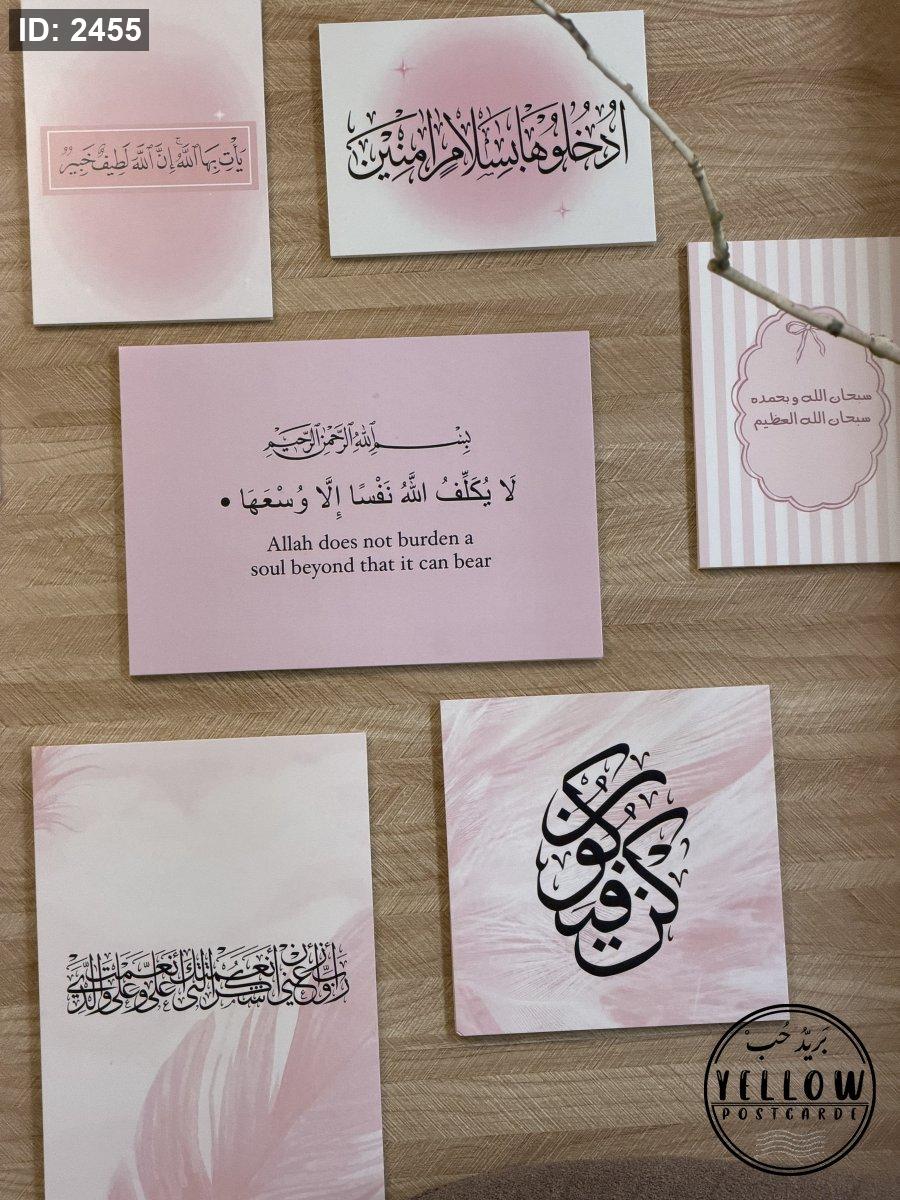 ID: 2455
يَأْتِ بِهَا ٱللَّهُ ۚ إِنَّ ٱللَّهَ لَطِيفٌ خَبِيرٌ
ٱدْخُلُوهَا بِسَلَامٍ آمِنِينَ
سبحان الله و بحمده
سبحان الله العظيم
بِسْمِ ٱللَّهِ ٱلرَّحْمَٰنِ ٱلرَّحِيمِ
لَا يُكَلِّفُ اللَّهُ نَفْسًا إِلَّا وُسْعَهَا •
Allah does not burden a
soul beyond that it can bear
رب أوزعني أن أشكر نعمتك التي أنعمت علي وعلى والدي
كن فيكون
بَرِيدُ حُبّ
YELLOW
POSTCARDE